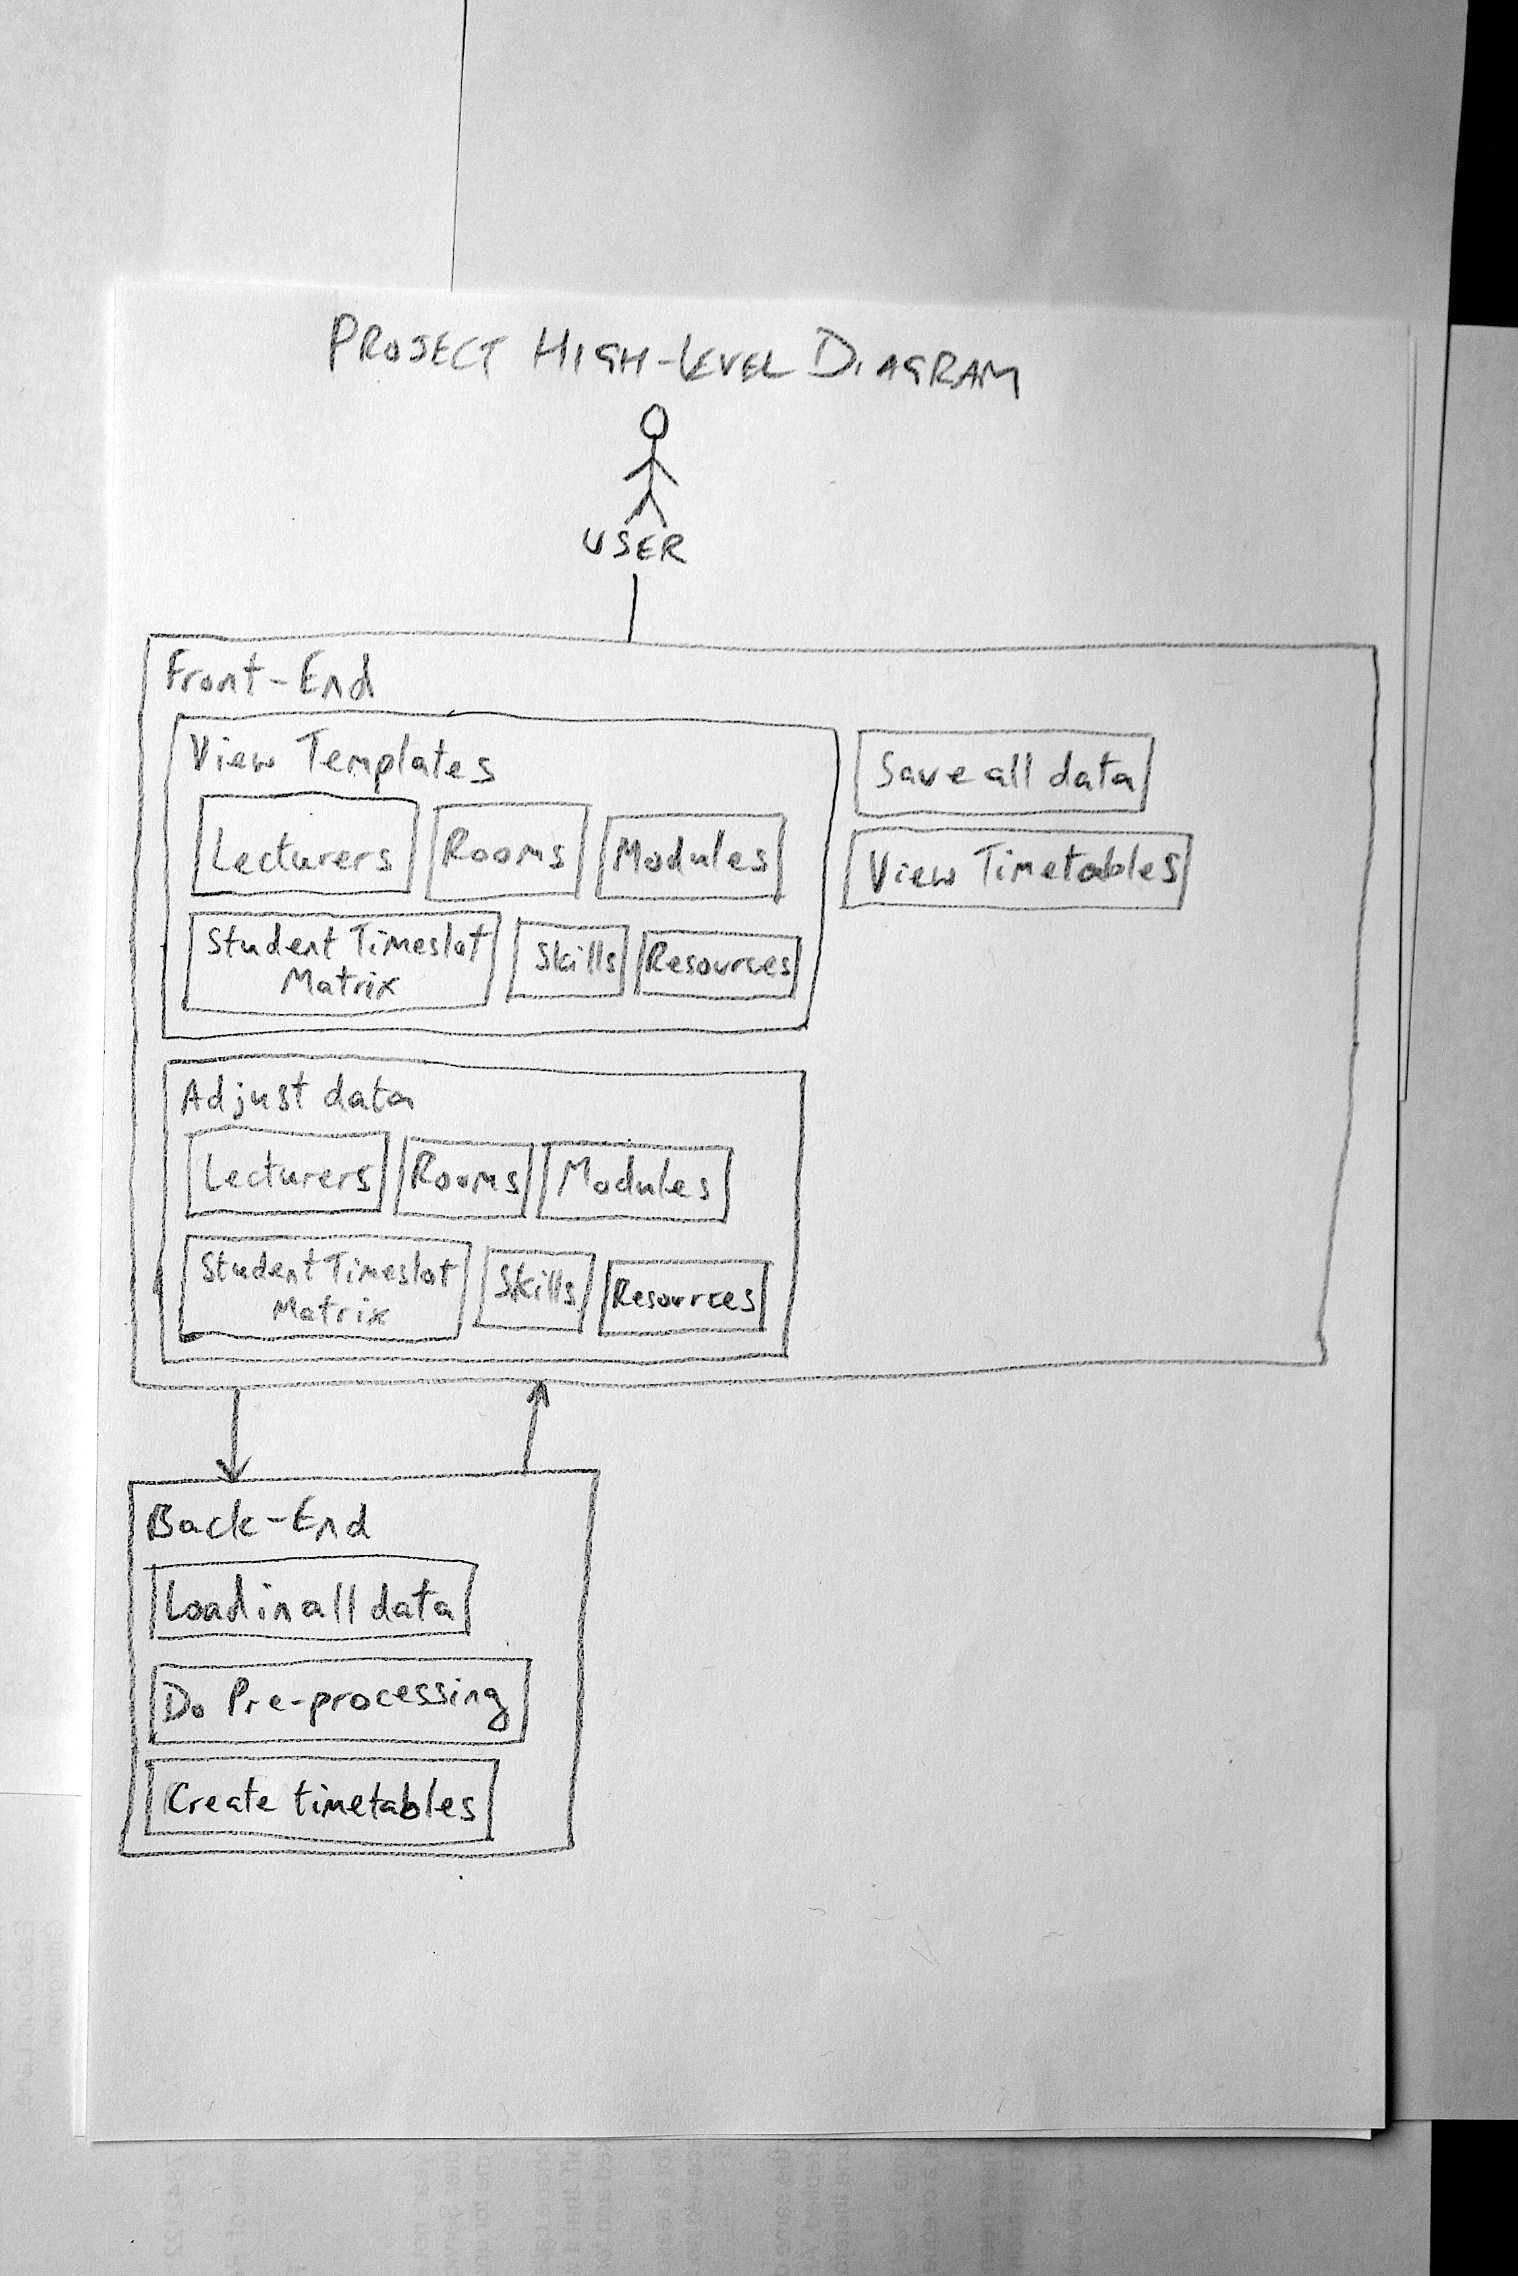 PROJECT HIGH-LEVEL DIAGRAM
USER
Front-End
View Templates
Lecturers
Rooms
Modules
Student Timeslot
Matrix
Skills
Resources
Save all data
View Timetables
Adjust data
Lecturers
Rooms
Modules
Student Timeslot
Matrix
Skills
Resources
Back-End
Load in all data
Do Pre-processing
Create timetables